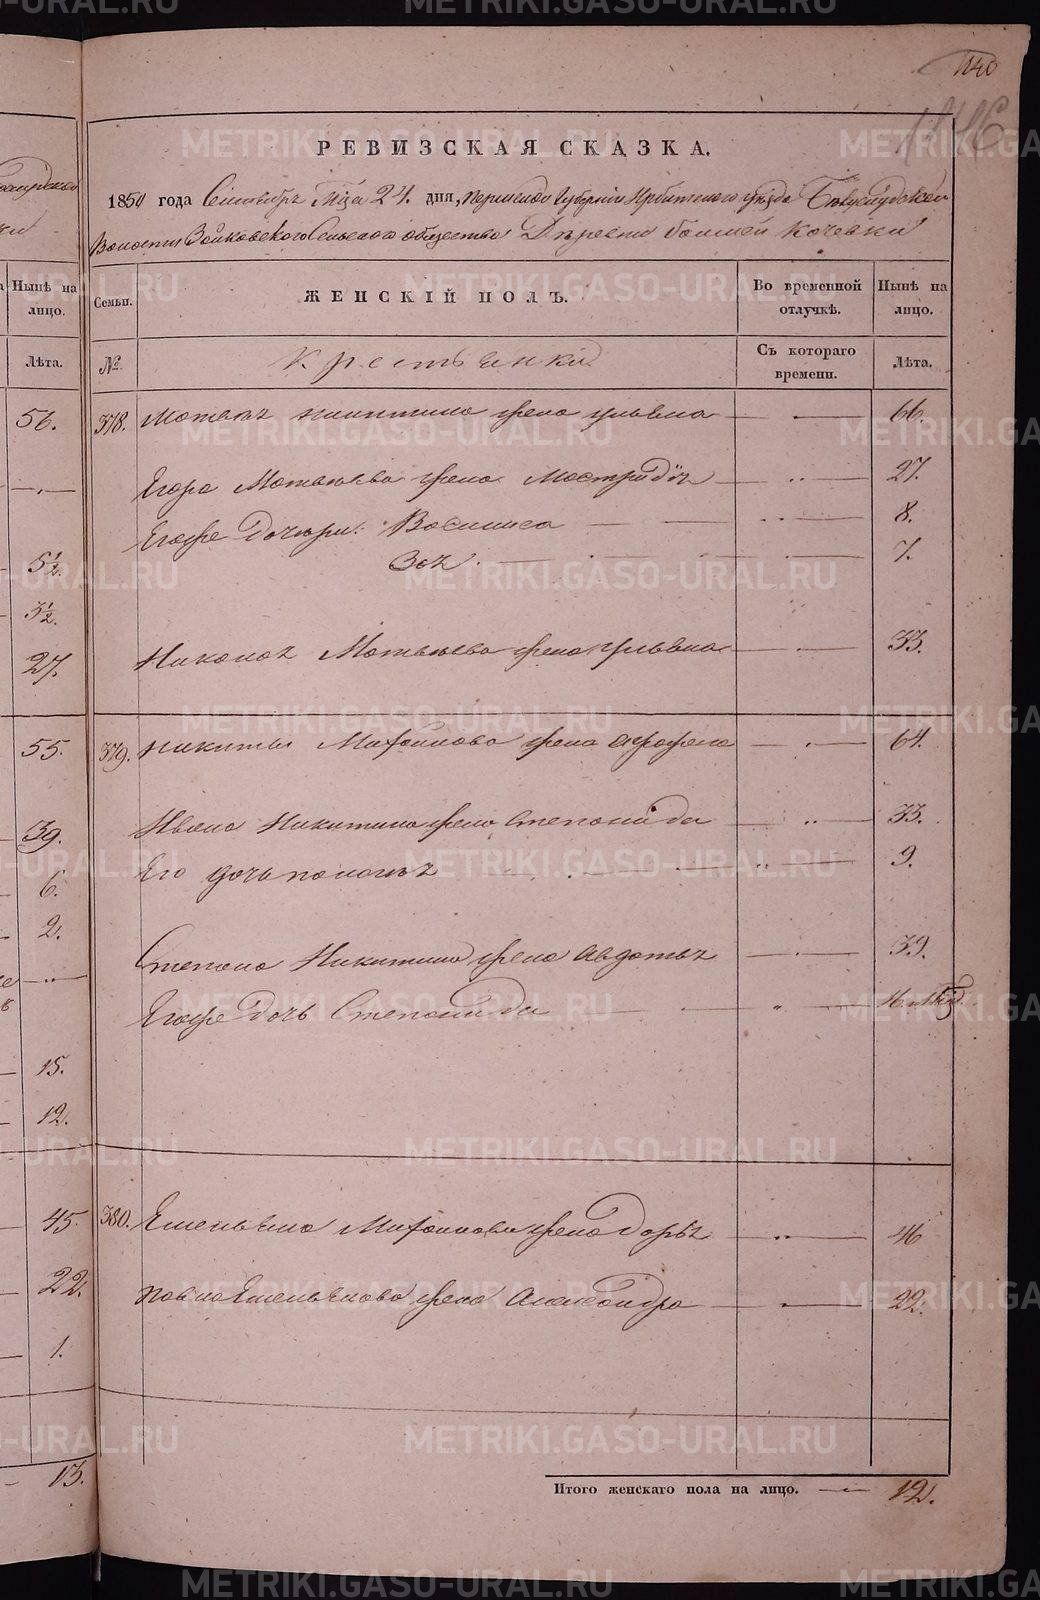 METRIKI.GASO-URAL.RU
1146
РЕВИЗСКАЯ СКАЗКА.
1850 года Сентября Мца 24. дня, Пермской Губернии Ирбитского уезда Белослудской
Волости Зайковского Сельского общества Деревни большой Кочевки
Семьи.
ЖЕНСКІЙ ПОЛЪ.
Во временной отлучкѣ.
Нынѣ на лицо.
№
Крестьянки
Съ котораго времени.
Лѣта.
378. Матвея никитина жена ульяна — 66.
Егора Матвѣева жена Мастридія — 27.
Егоже дочери: Василиса — 8.
Зоя. — 7.
Николая Матвѣева жена ульяна — 33.
379. никиты Михайлова жена афросенья — 64.
Ивана Никитина жена степанида — 33.
Его дочь пелагѣя — 9.
Степана Никитина жена авдотья — 39.
Егоже дочь Степанида —
380. Емельяна Михайлова жена дарья — 46
павла Емельянова жена александра — 22.
Итого женскаго пола на лицо. — 12.
Нынѣ на лицо.
Лѣта.
56.
5½.
3½.
27.
55.
39.
6.
2.
15.
12.
45.
22.
1.
13.